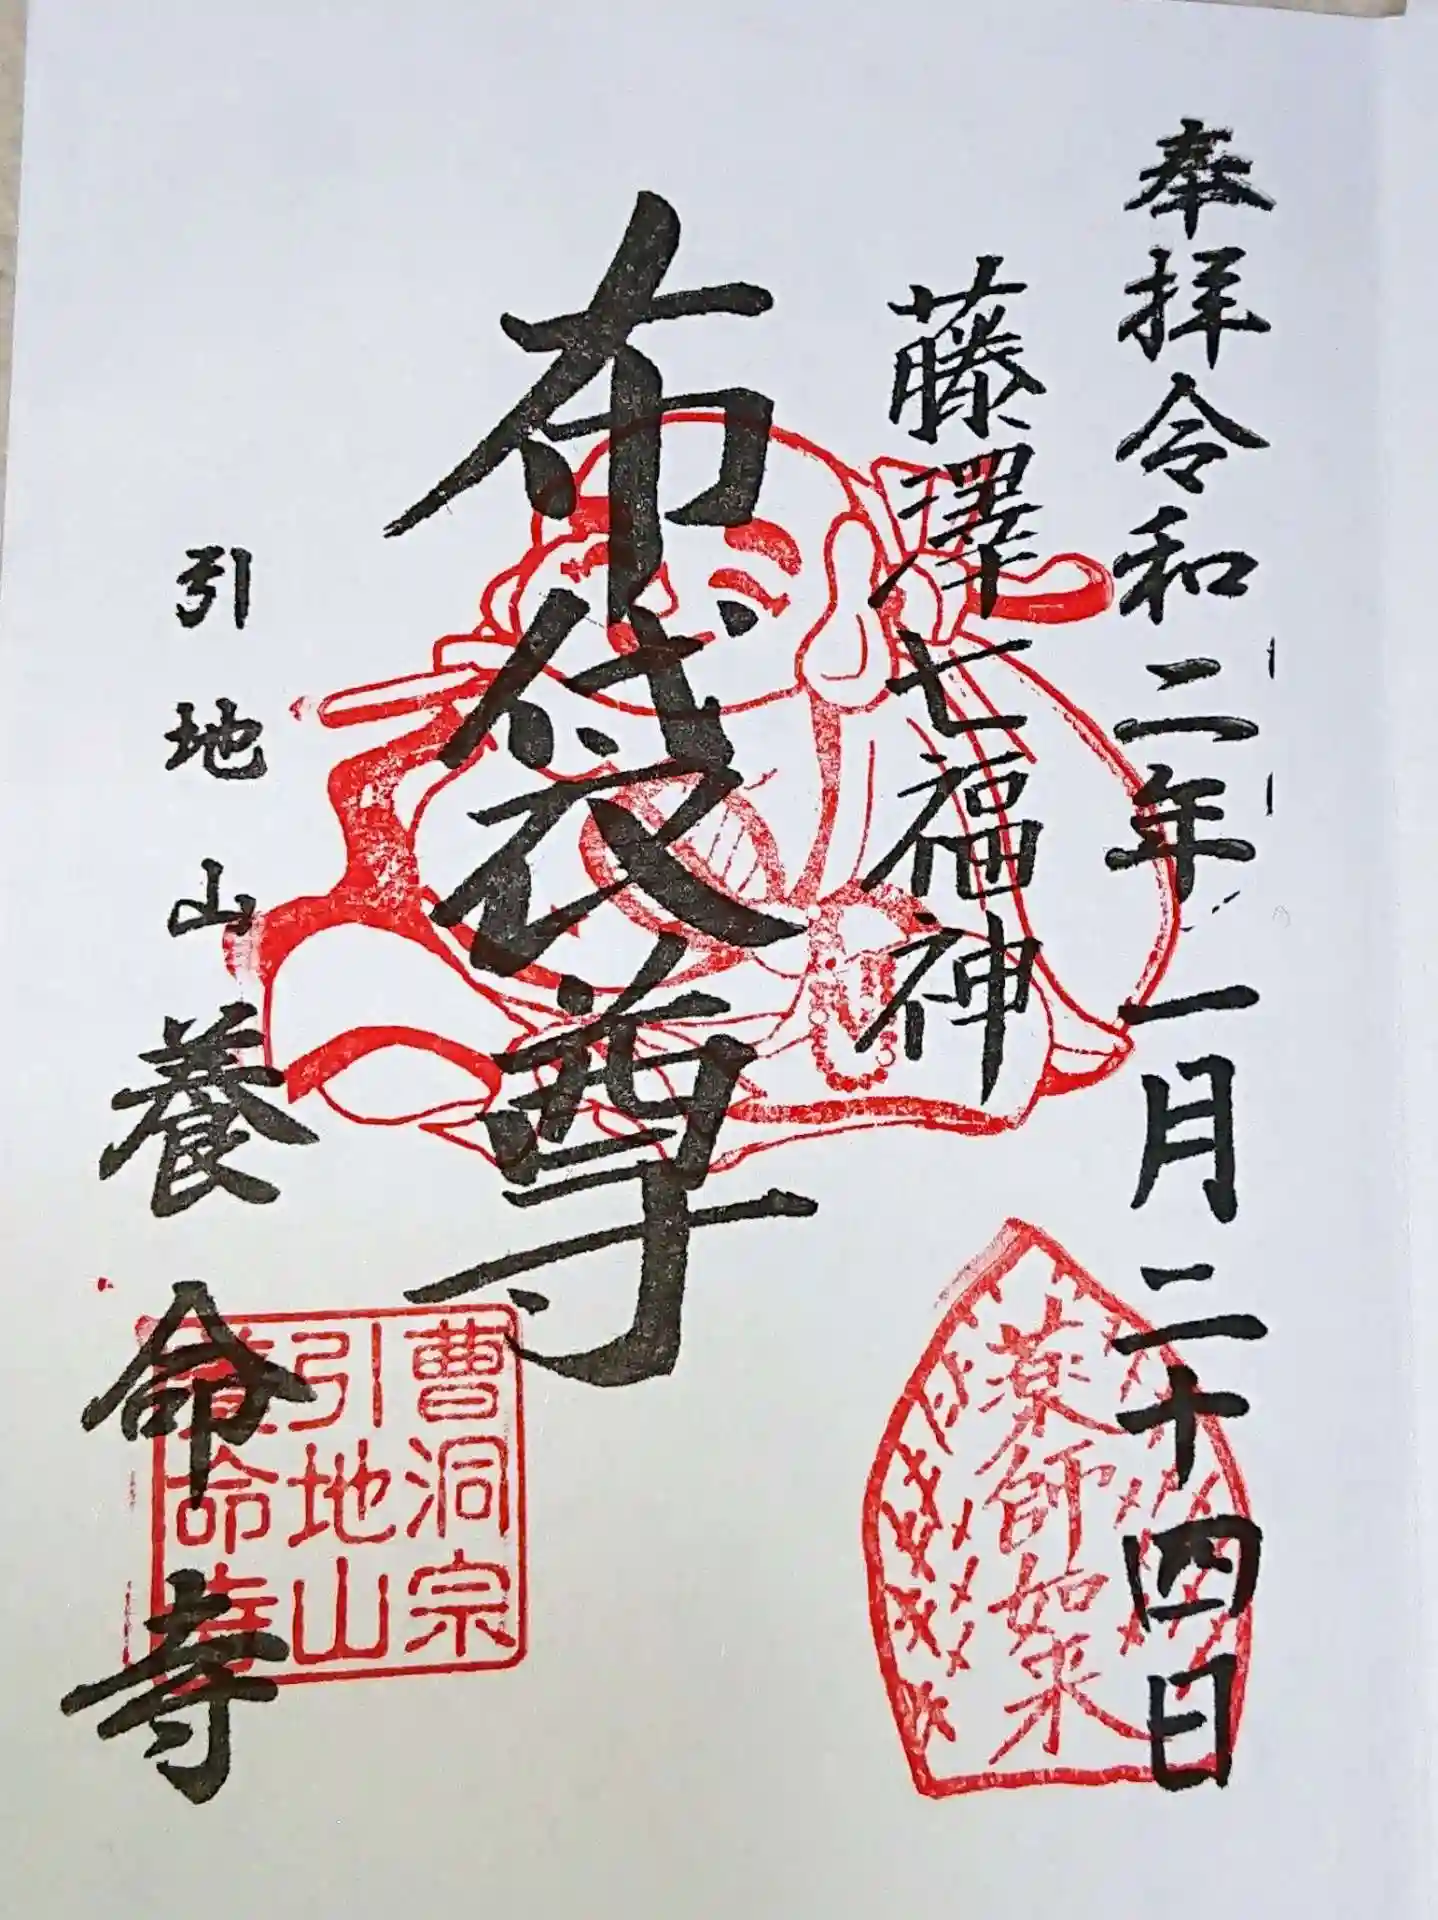 奉拝令和二年一月二十四日
藤澤七福神
布袋尊
引地山養命寺
薬師如来
曹洞宗
引地山
養命寺